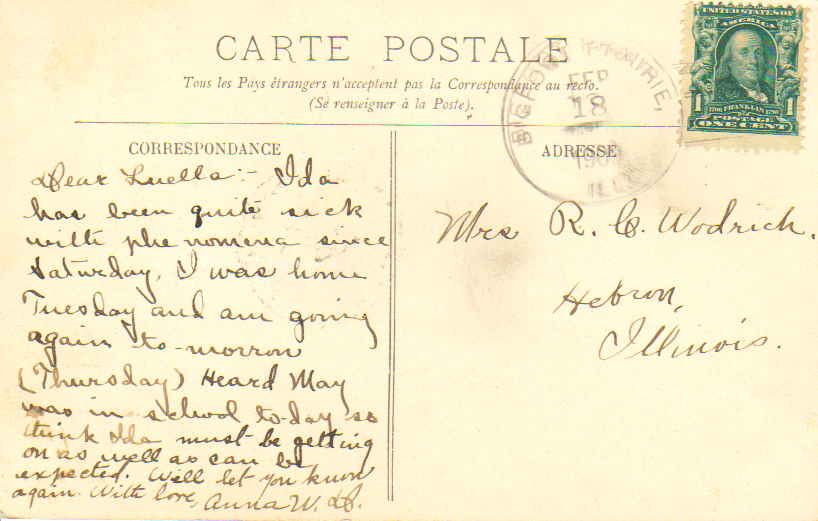 CARTE POSTALE
Tous les Pays étrangers n'acceptent pas la Correspondance au recto.
(Se renseigner à la Poste).
UNITED STATES OF
AMERICA
1 FRANKLIN 1
POSTAGE
ONE CENT
FEB
18
ILL
CORRESPONDANCE
Dear Luella:- Ida
has been quite sick
with phenomena since
Saturday, I was home
Tuesday and am going
again to-morrow
(Thursday) Heard May
was in school to-day so
think Ida must be getting
on as well as can be
expected. Will let you know
again. With love, Anna W. D.
ADRESSE
Mrs R. C. Wodrich.
Hebron,
Illinois.